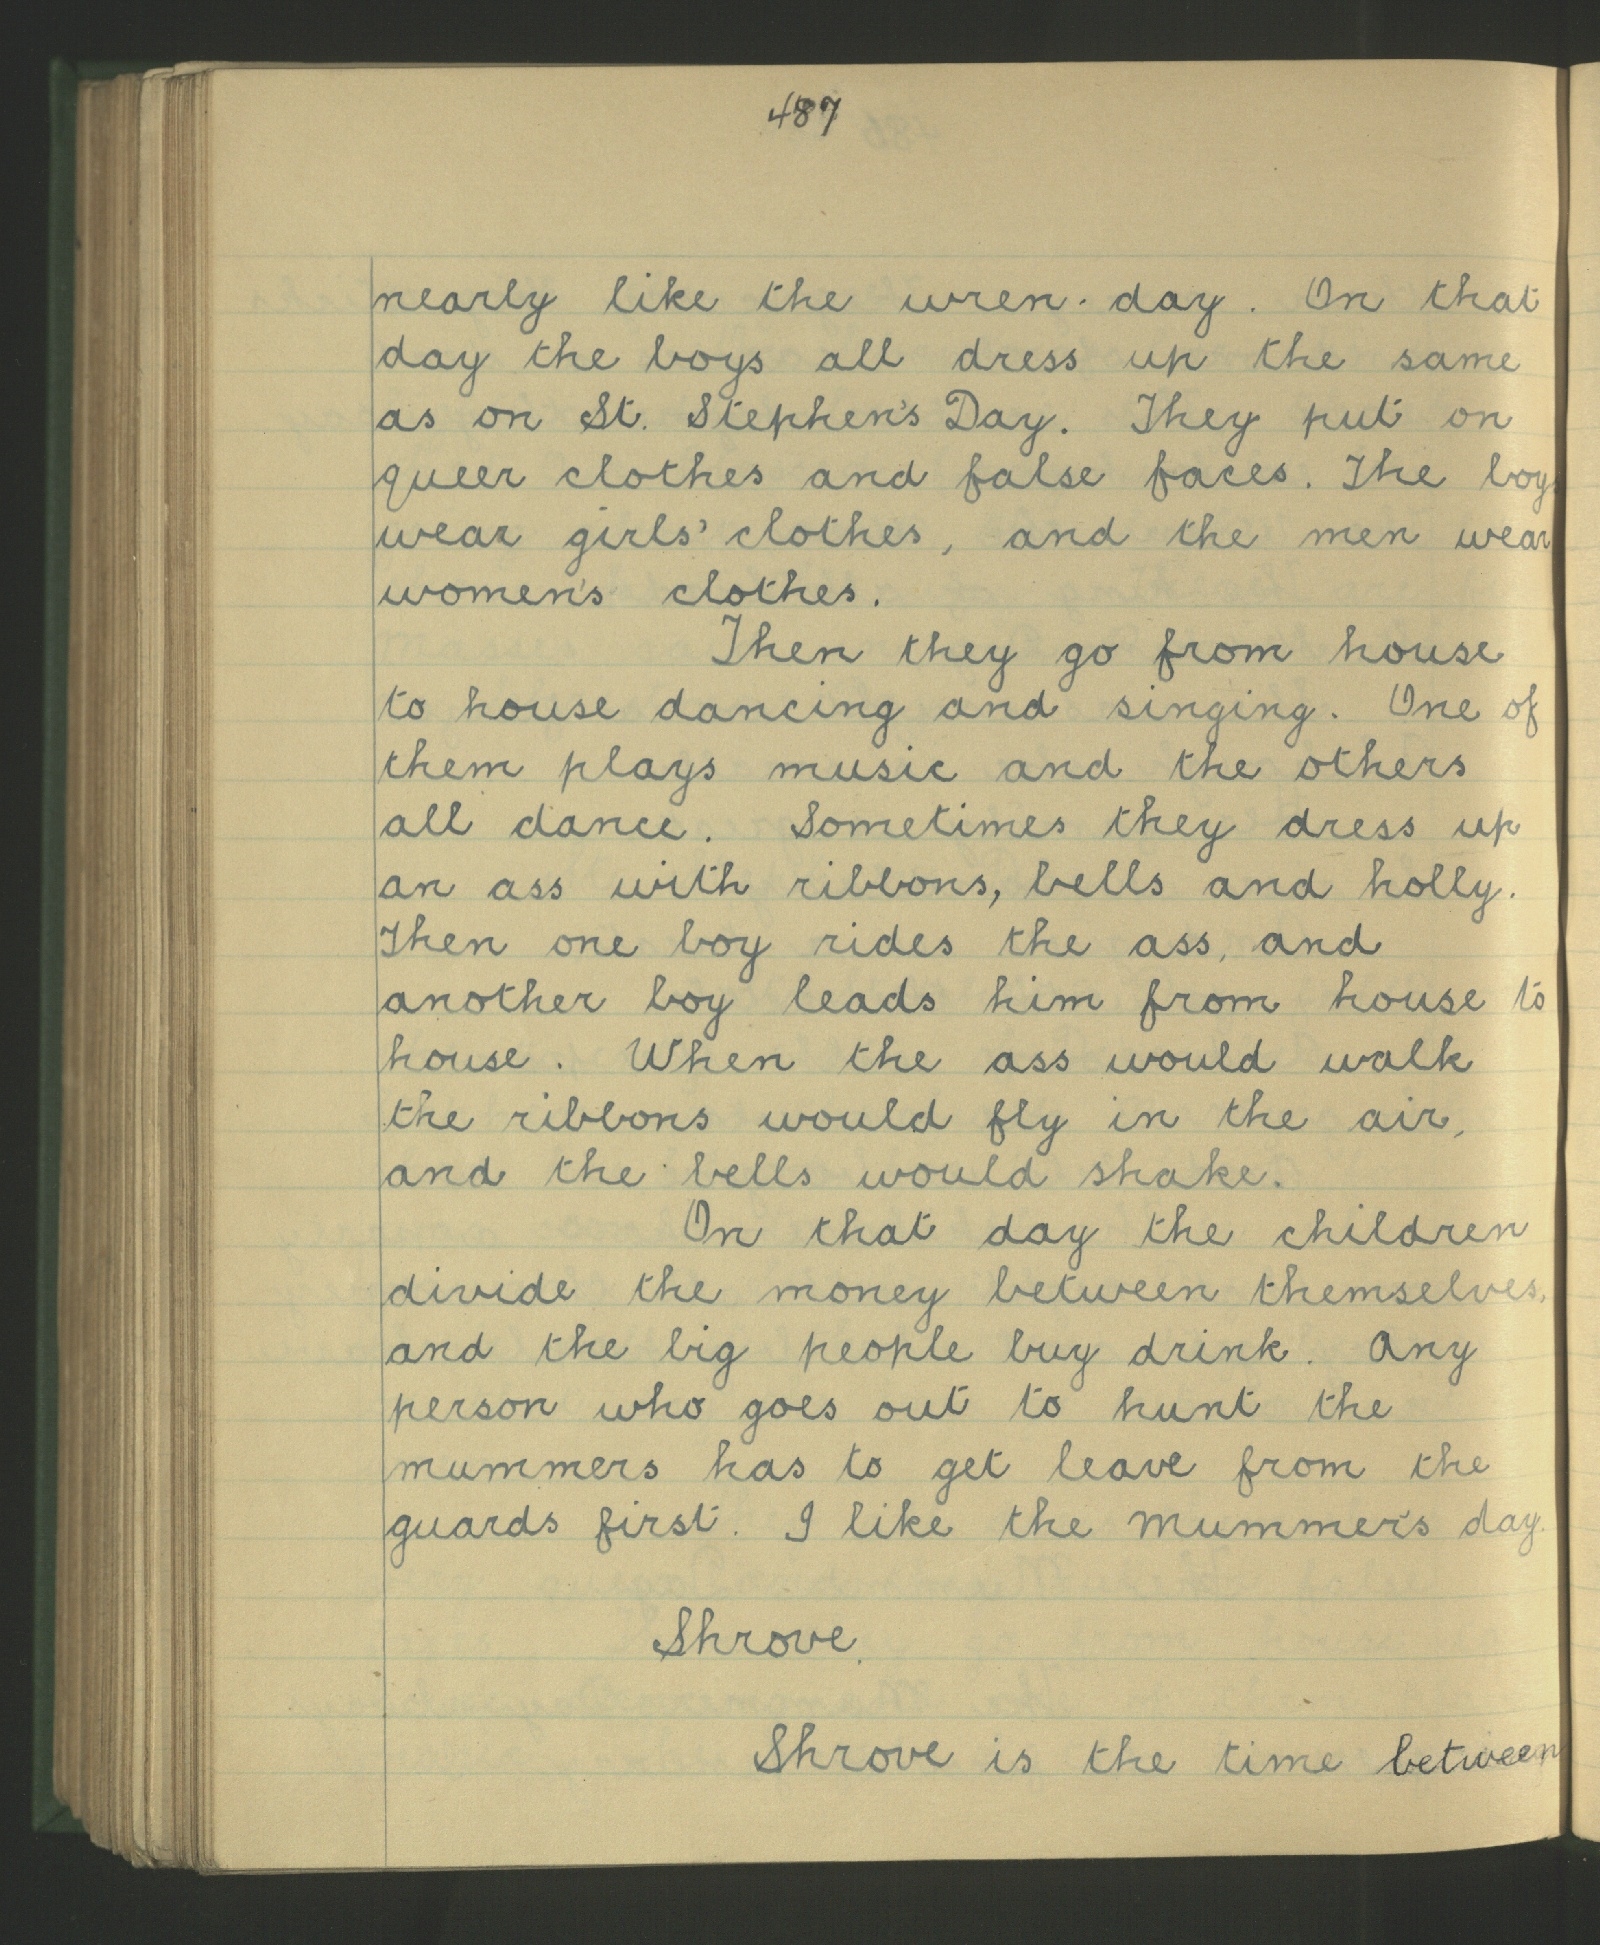 487
nearly like the wren-day. On that
day the boys all dress up the same
as on St. Stephen's Day. They put on
queer clothes and false faces. The boys
wear girls' clothes, and the men wear
women's clothes.
Then they go from house
to house dancing and singing. One of
them plays music and the others
all dance. Sometimes they dress up
an ass with ribbons, bells and holly.
Then one boy rides the ass, and
another boy leads him from house to
house. When the ass would walk
the ribbons would fly in the air,
and the bells would shake.
On that day the children
divide the money between themselves,
and the big people buy drink. Any
person who goes out to hunt the
mummers has to get leave from the
guards first. I like the Mummer's day.
Shrove.
Shrove is the time between